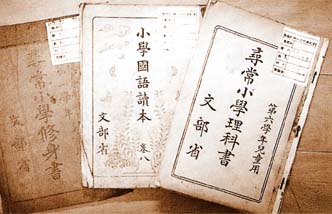 尋常小學修身書
文部省
小學國語讀本
卷八
文部省
尋常小學理科書
第六學年兒童用
文部省